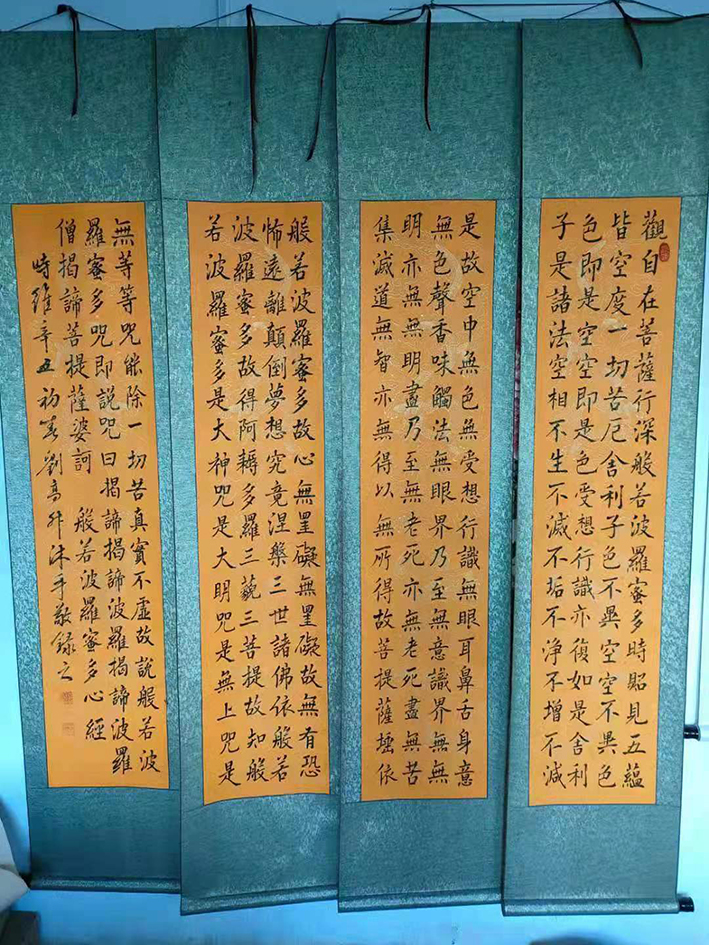 觀自在菩薩行深般若波羅蜜多時照見五蘊
皆空度一切苦厄舍利子色不異空空不異色
色即是空空即是色受想行識亦復如是舍利
子是諸法空相不生不滅不垢不淨不增不減
是故空中無色無受想行識無眼耳鼻舌身意
無色聲香味觸法無眼界乃至無意識界無無
明亦無無明盡乃至無老死亦無老死盡無苦
集滅道無智亦無得以無所得故菩提薩埵依
般若波羅蜜多故心無罣礙無罣礙故無有恐
怖遠離顛倒夢想究竟涅槃三世諸佛依般若
波羅蜜多故得阿耨多羅三藐三菩提故知般
若波羅蜜多是大神咒是大明咒是無上咒是
無等等咒能除一切苦真實不虛故說般若波
羅蜜多咒即說咒曰揭諦揭諦波羅揭諦波羅
僧揭諦菩提薩婆訶 般若波羅蜜多心經
時維辛丑初劉高升沐手敬錄之